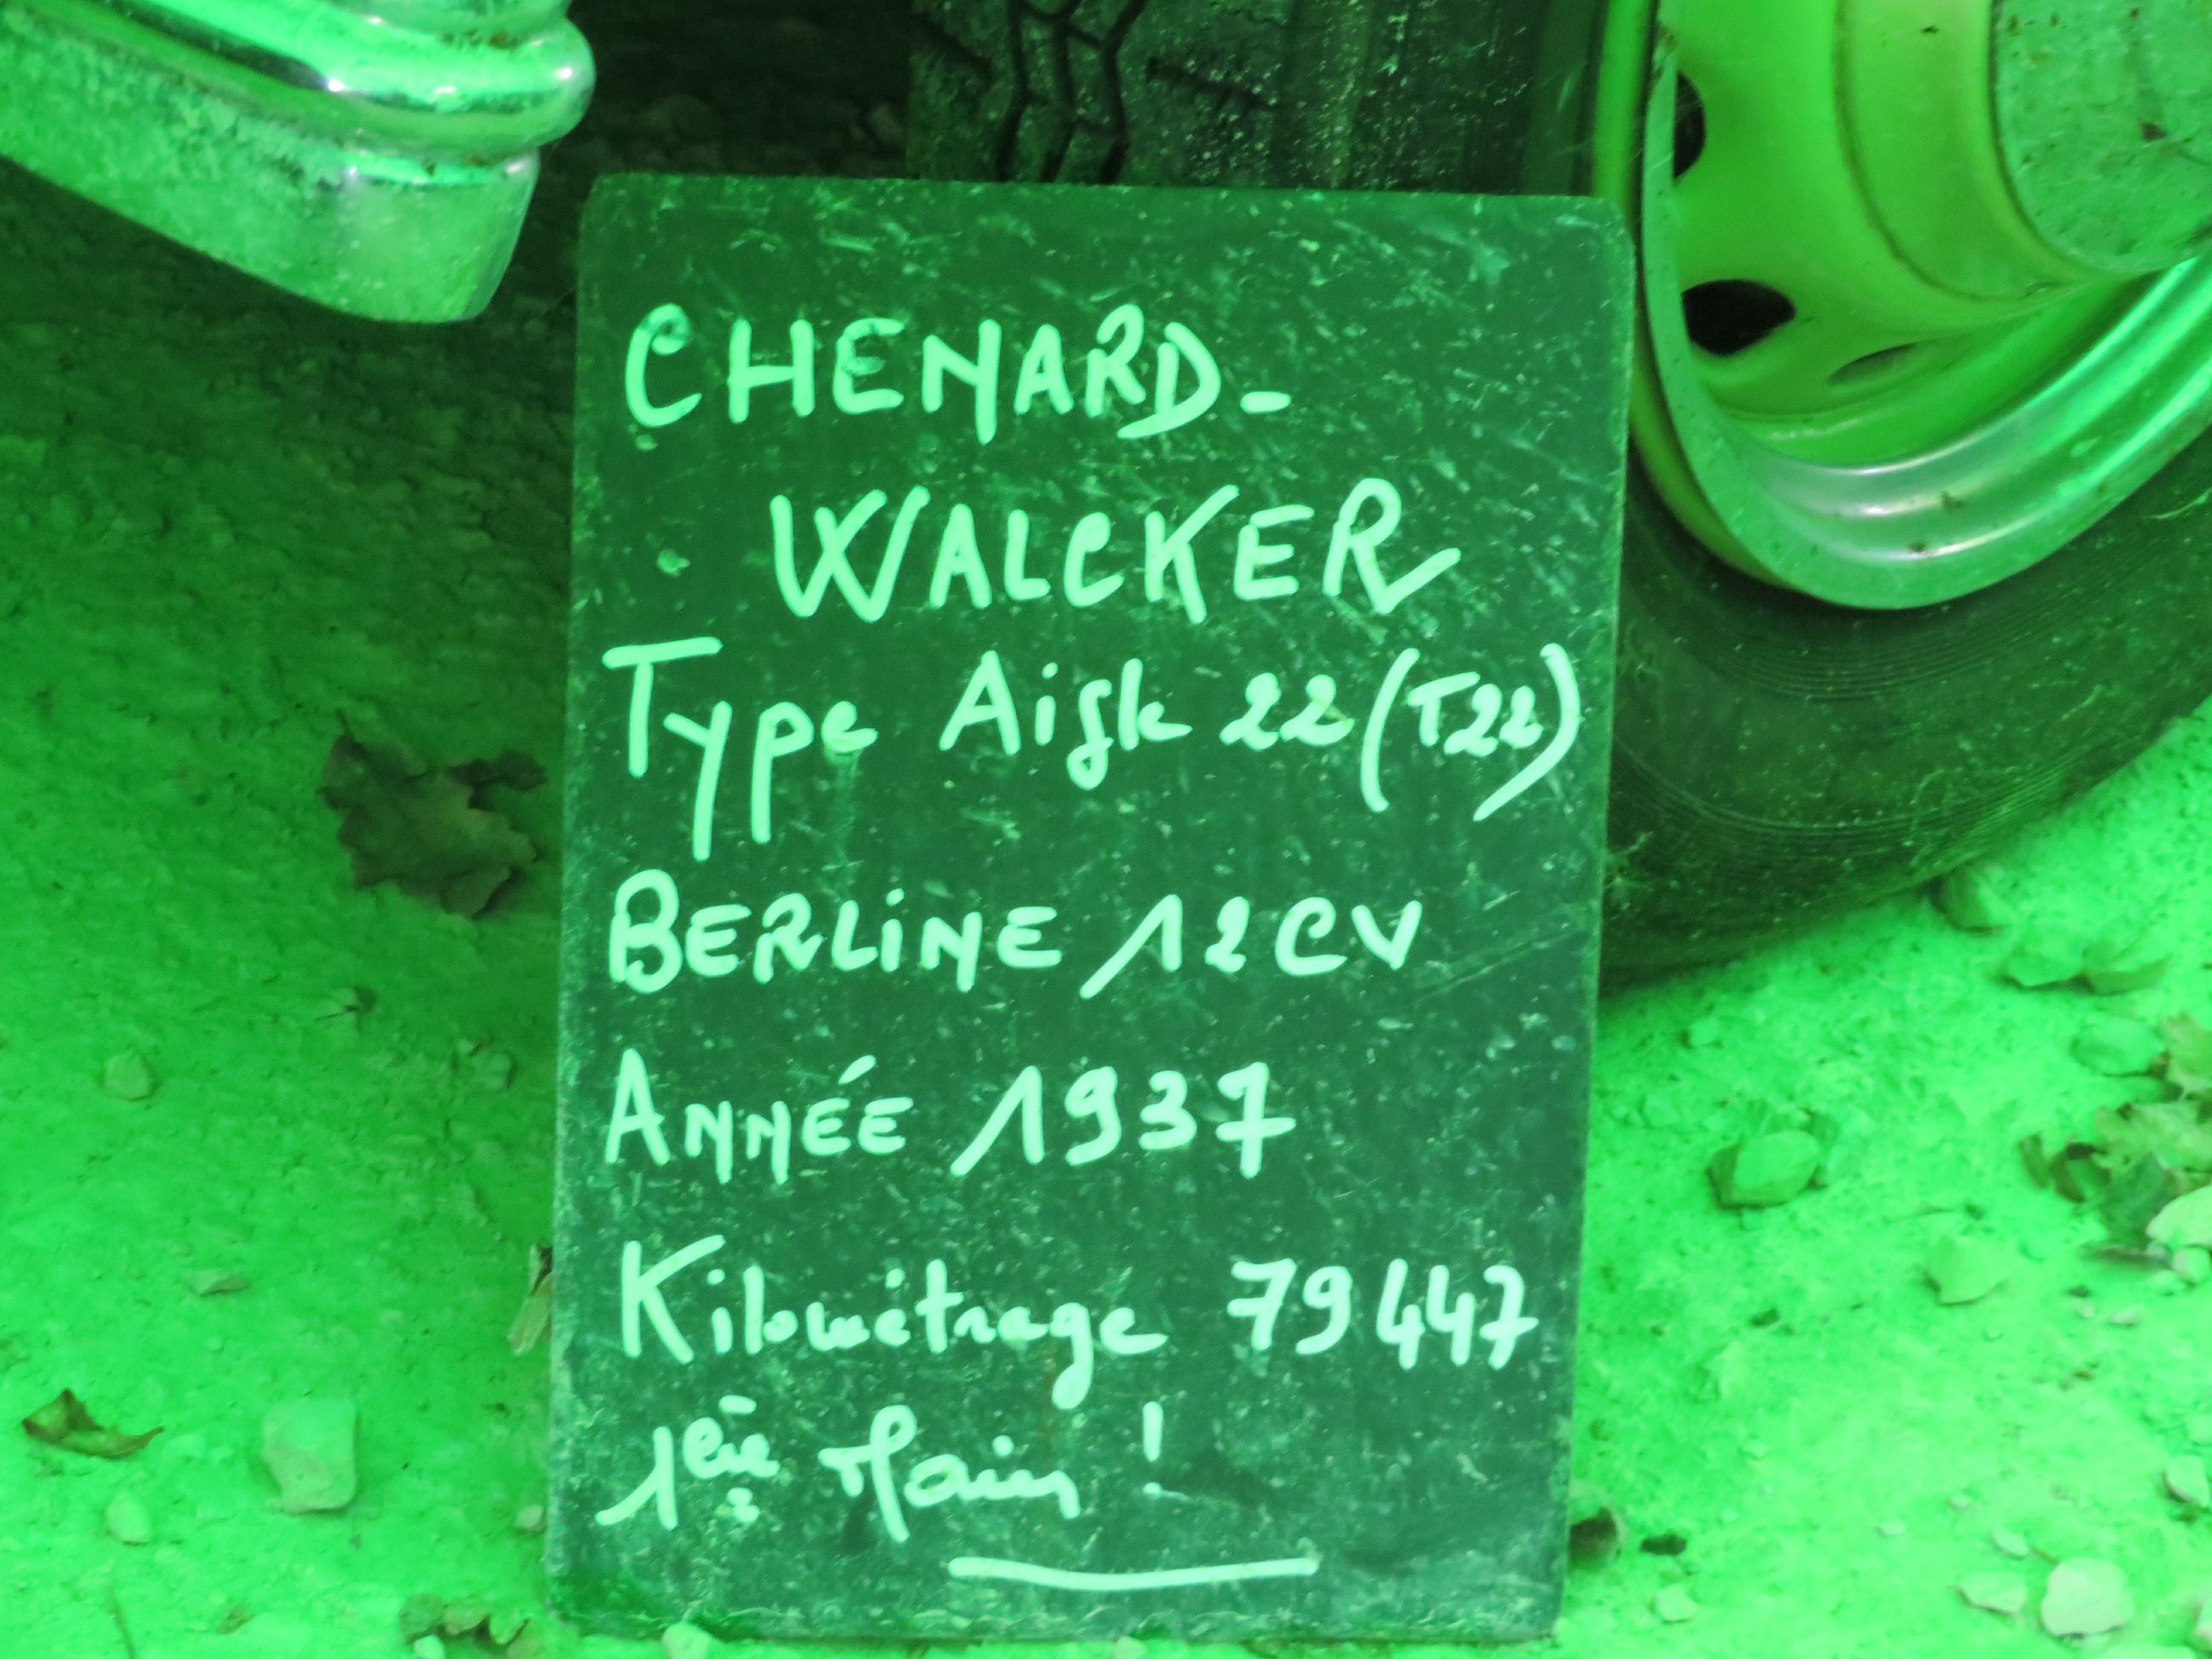 CHENARD-
WALCKER
Type Aigle 22 (T22)
BERLiNE 12CV
ANNÉE 1937
Kilométrage 79447
1ère Main !